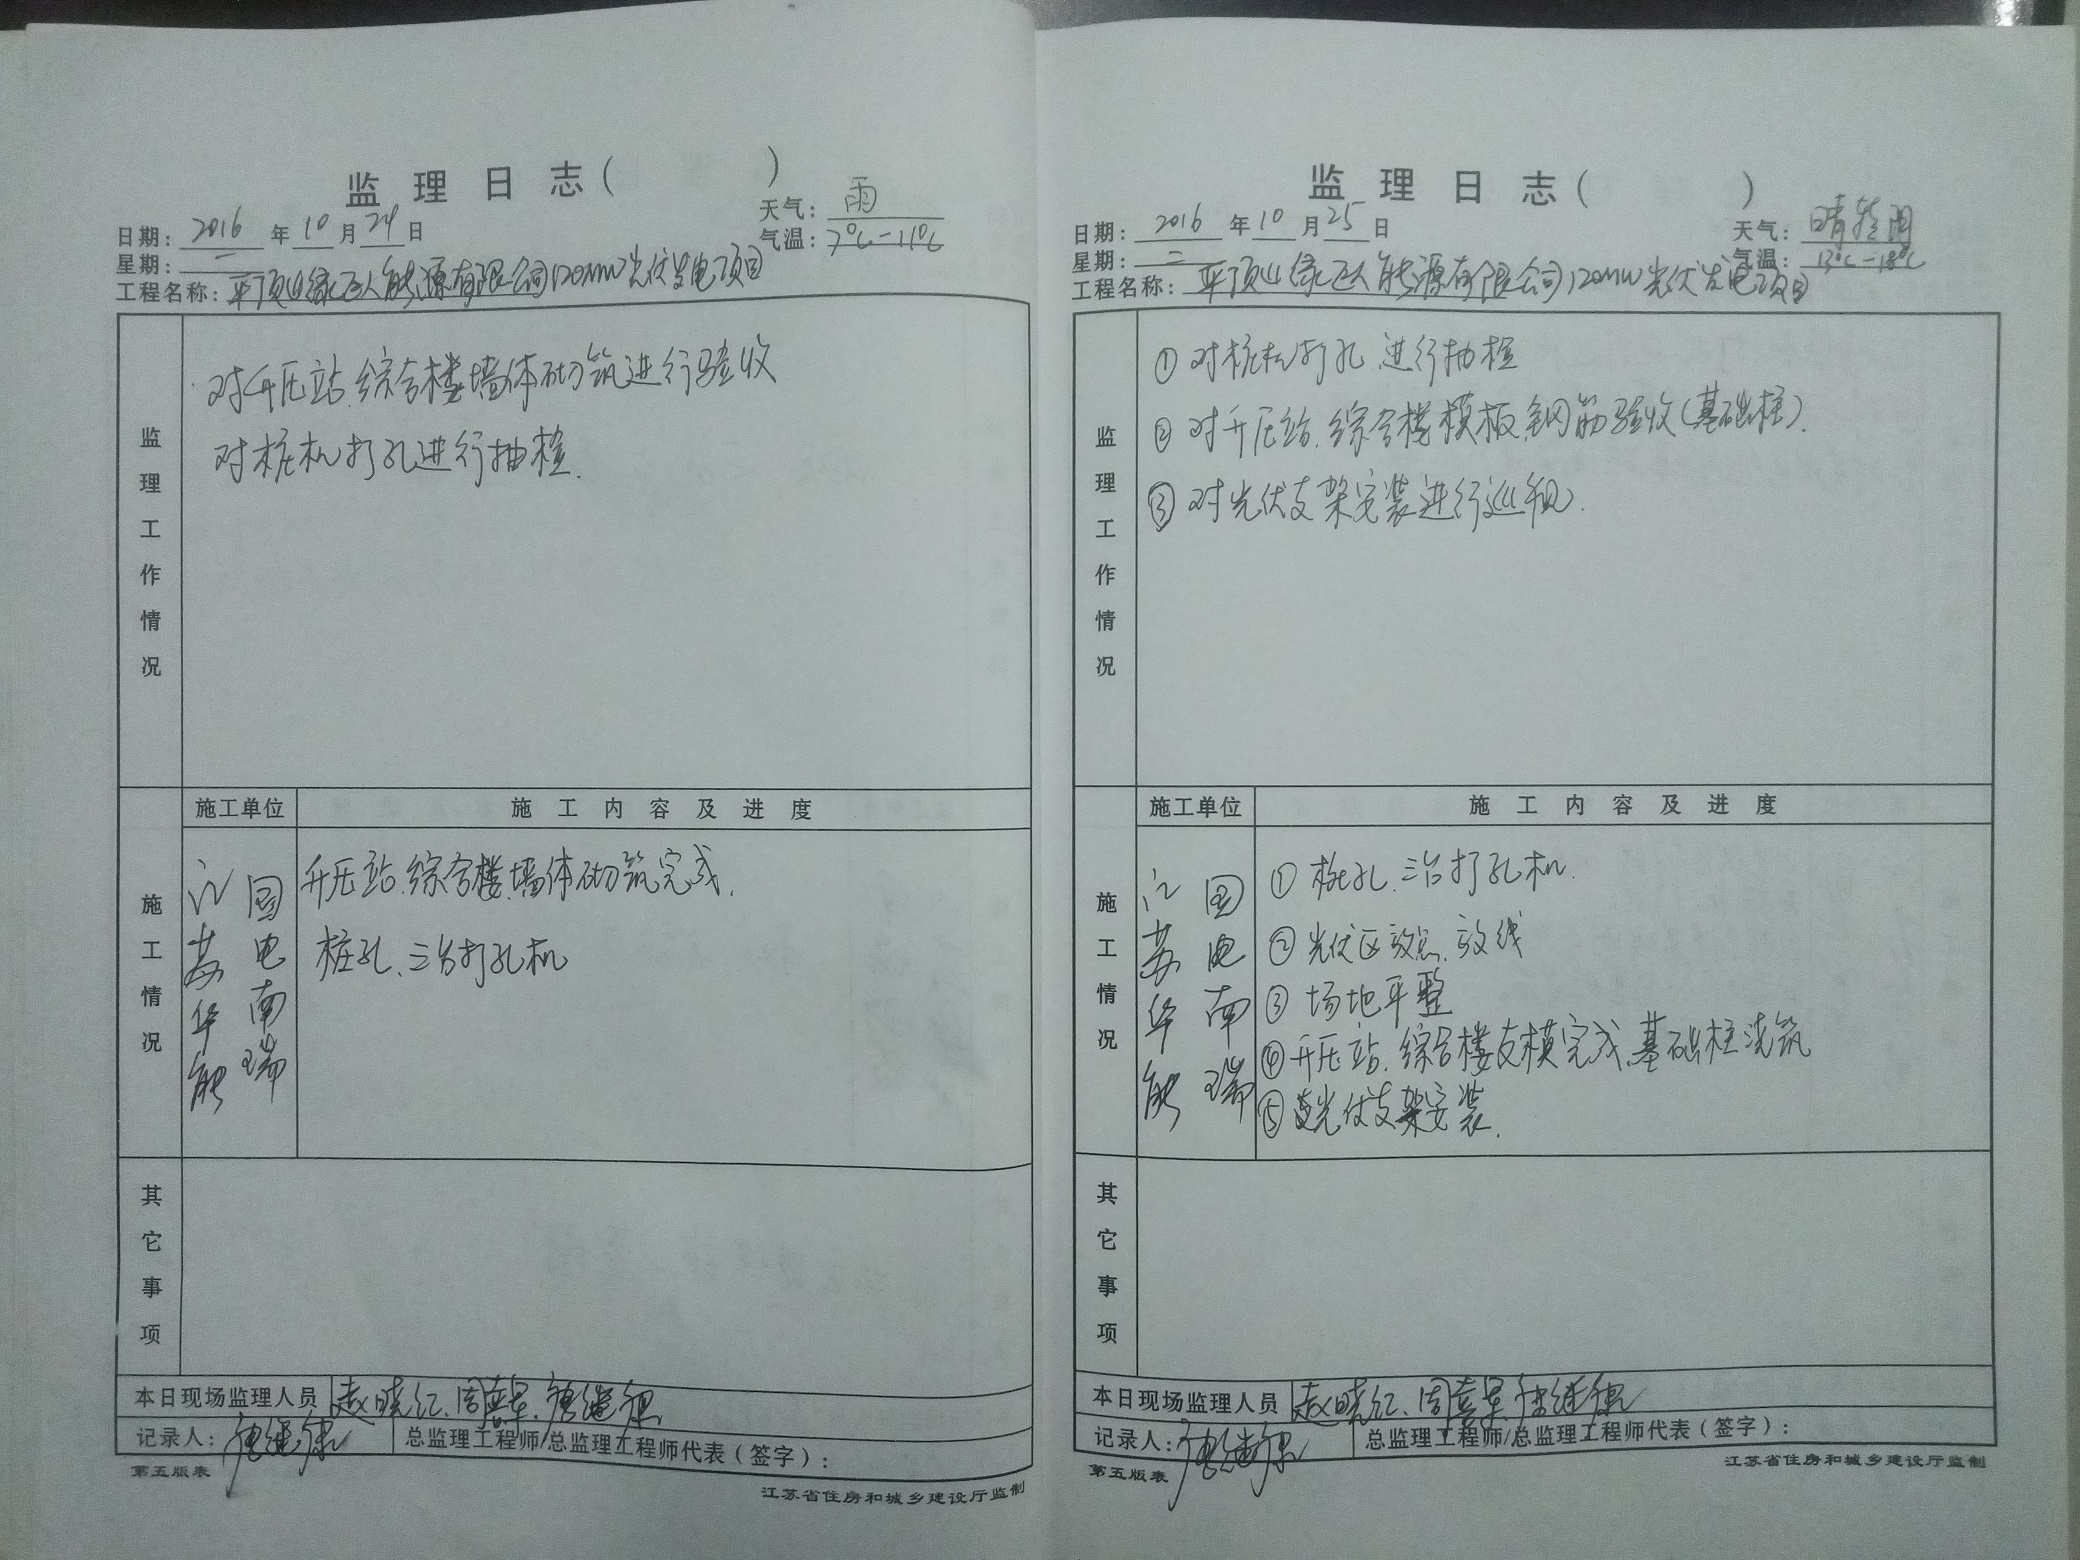 监理日志（ ）
日期：2016年10月24日
天气：雨
星期：一
气温：7℃-11℃
工程名称：平顶山绿 能源有限公司120MW光伏发电项目
监理工作情况
对升压站.综合楼墙体砌筑进行验收
对桩机打孔进行抽检.
施工情况
施工单位
施工内容及进度
江苏华能
国电南瑞
升压站.综合楼.墙体砌筑完成.
桩孔、三台打孔机
其它事项
本日现场监理人员
赵晓红、周 军、
记录人：
总监理工程师/总监理工程师代表（签字）：
第五版表
江苏省住房和城乡建设厅监制
监理日志（ ）
日期：2016年10月25日
天气：晴转阴
星期：二
气温：13℃-18℃
工程名称：平顶山绿 能源有限公司120MW光伏发电项目
监理工作情况
①对桩机打孔.进行抽检
②对升压站.综合楼模板.钢筋验收(基础柱).
③对光伏支架安装进行巡视.
施工情况
施工单位
施工内容及进度
江苏华能
国电南瑞
①桩孔.三台打孔机.
②光伏区放点.放线
③场地平整
④升压站.综合楼支模完成.基础柱浇筑
⑤光伏支架安装.
其它事项
本日现场监理人员
赵晓红、周 军、
记录人：
总监理工程师/总监理工程师代表（签字）：
第五版表
江苏省住房和城乡建设厅监制